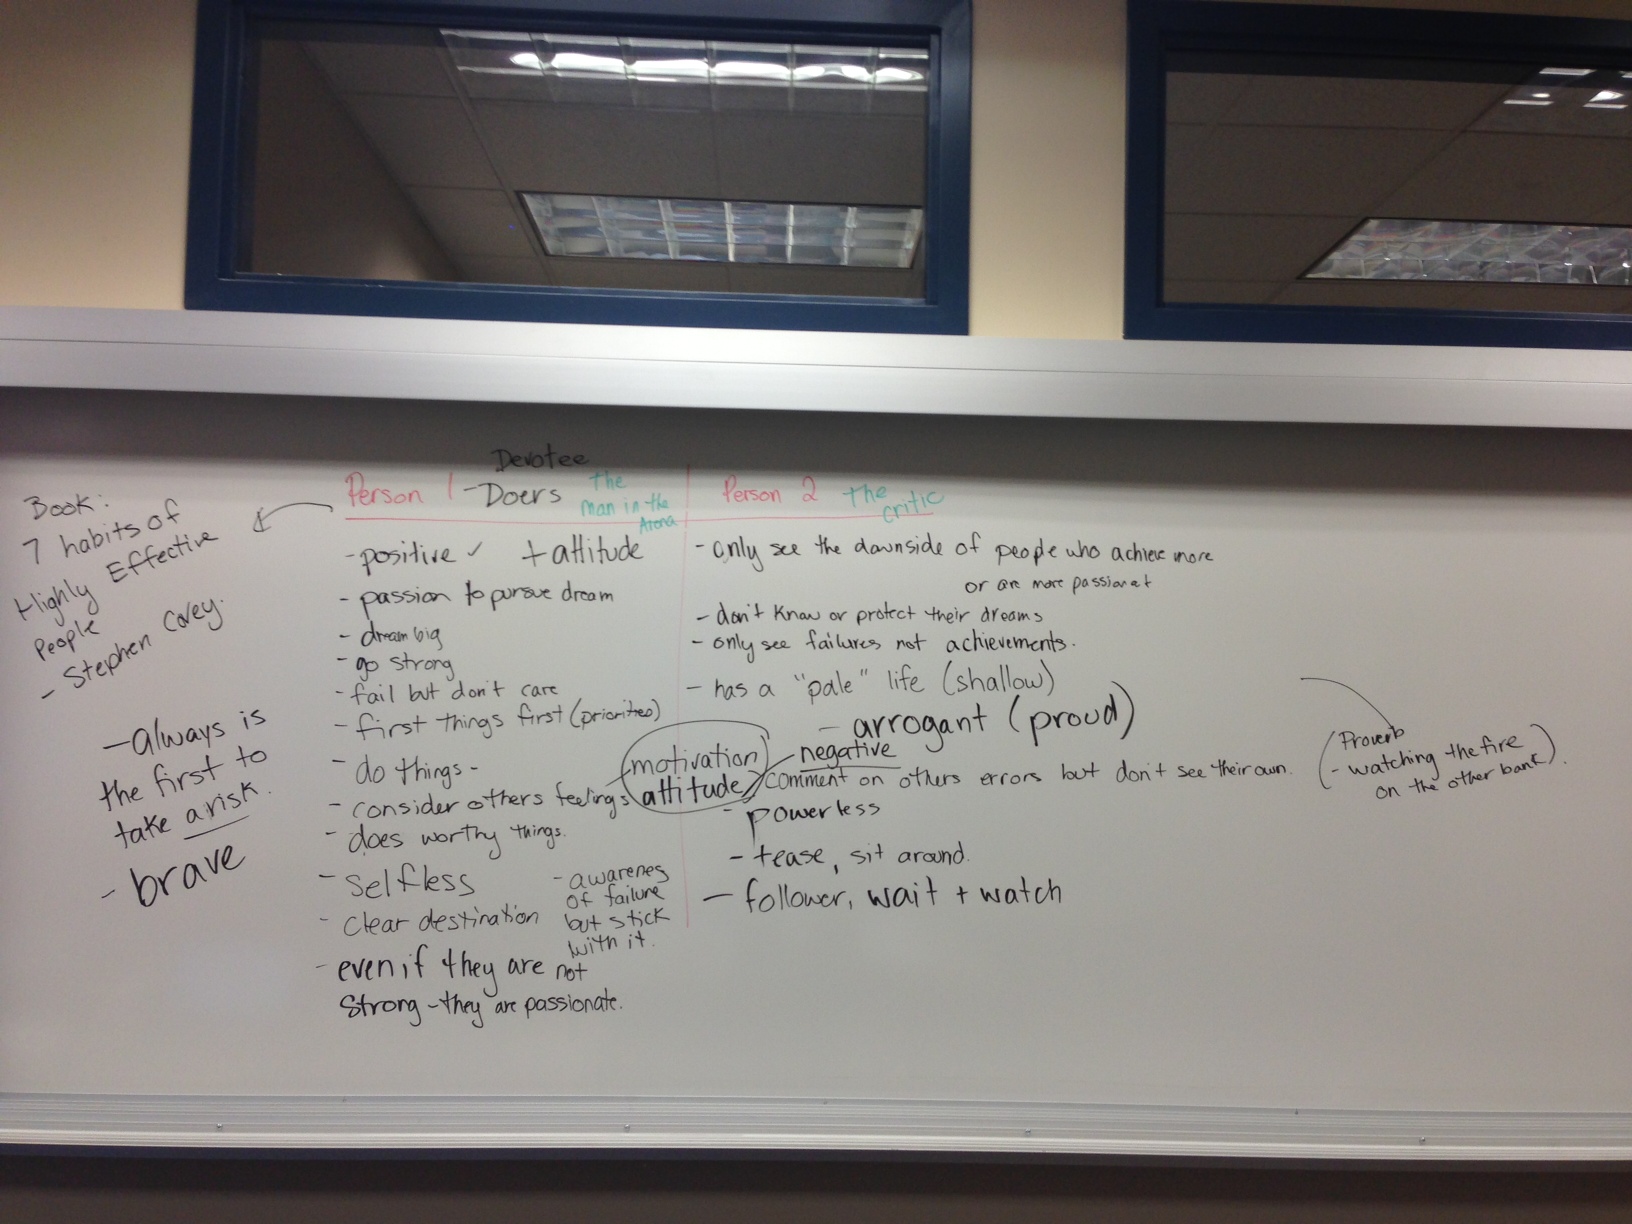 Book:
7 habits of
Highly Effective
People
- Stephen Covey.
- always is
the first to
take a risk.
- brave
Devotee
Person 1 - Doers the
man in the
Arena
- positive ✓ + attitude
- passion to pursue dream
- dream big
- go strong
- fail but don't care
- first things first (priorities)
- do things -
- consider others feelings
- does worthy things.
- selfless
- clear destination
- awarenes
of failure
but stick
with it.
- even if they are not
strong - they are passionate.
motivation
attitude
Person 2 the
critic
- only see the downside of people who achieve more
or are more passionet
- don't know or protect their dreams
- only see failures not achievements.
- has a "pale" life (shallow)
- arrogant (proud)
- negative
comment on others errors but don't see their own.
- powerless
- tease, sit around.
- follower, wait + watch
(Proverb
- watching the fire
on the other bank).